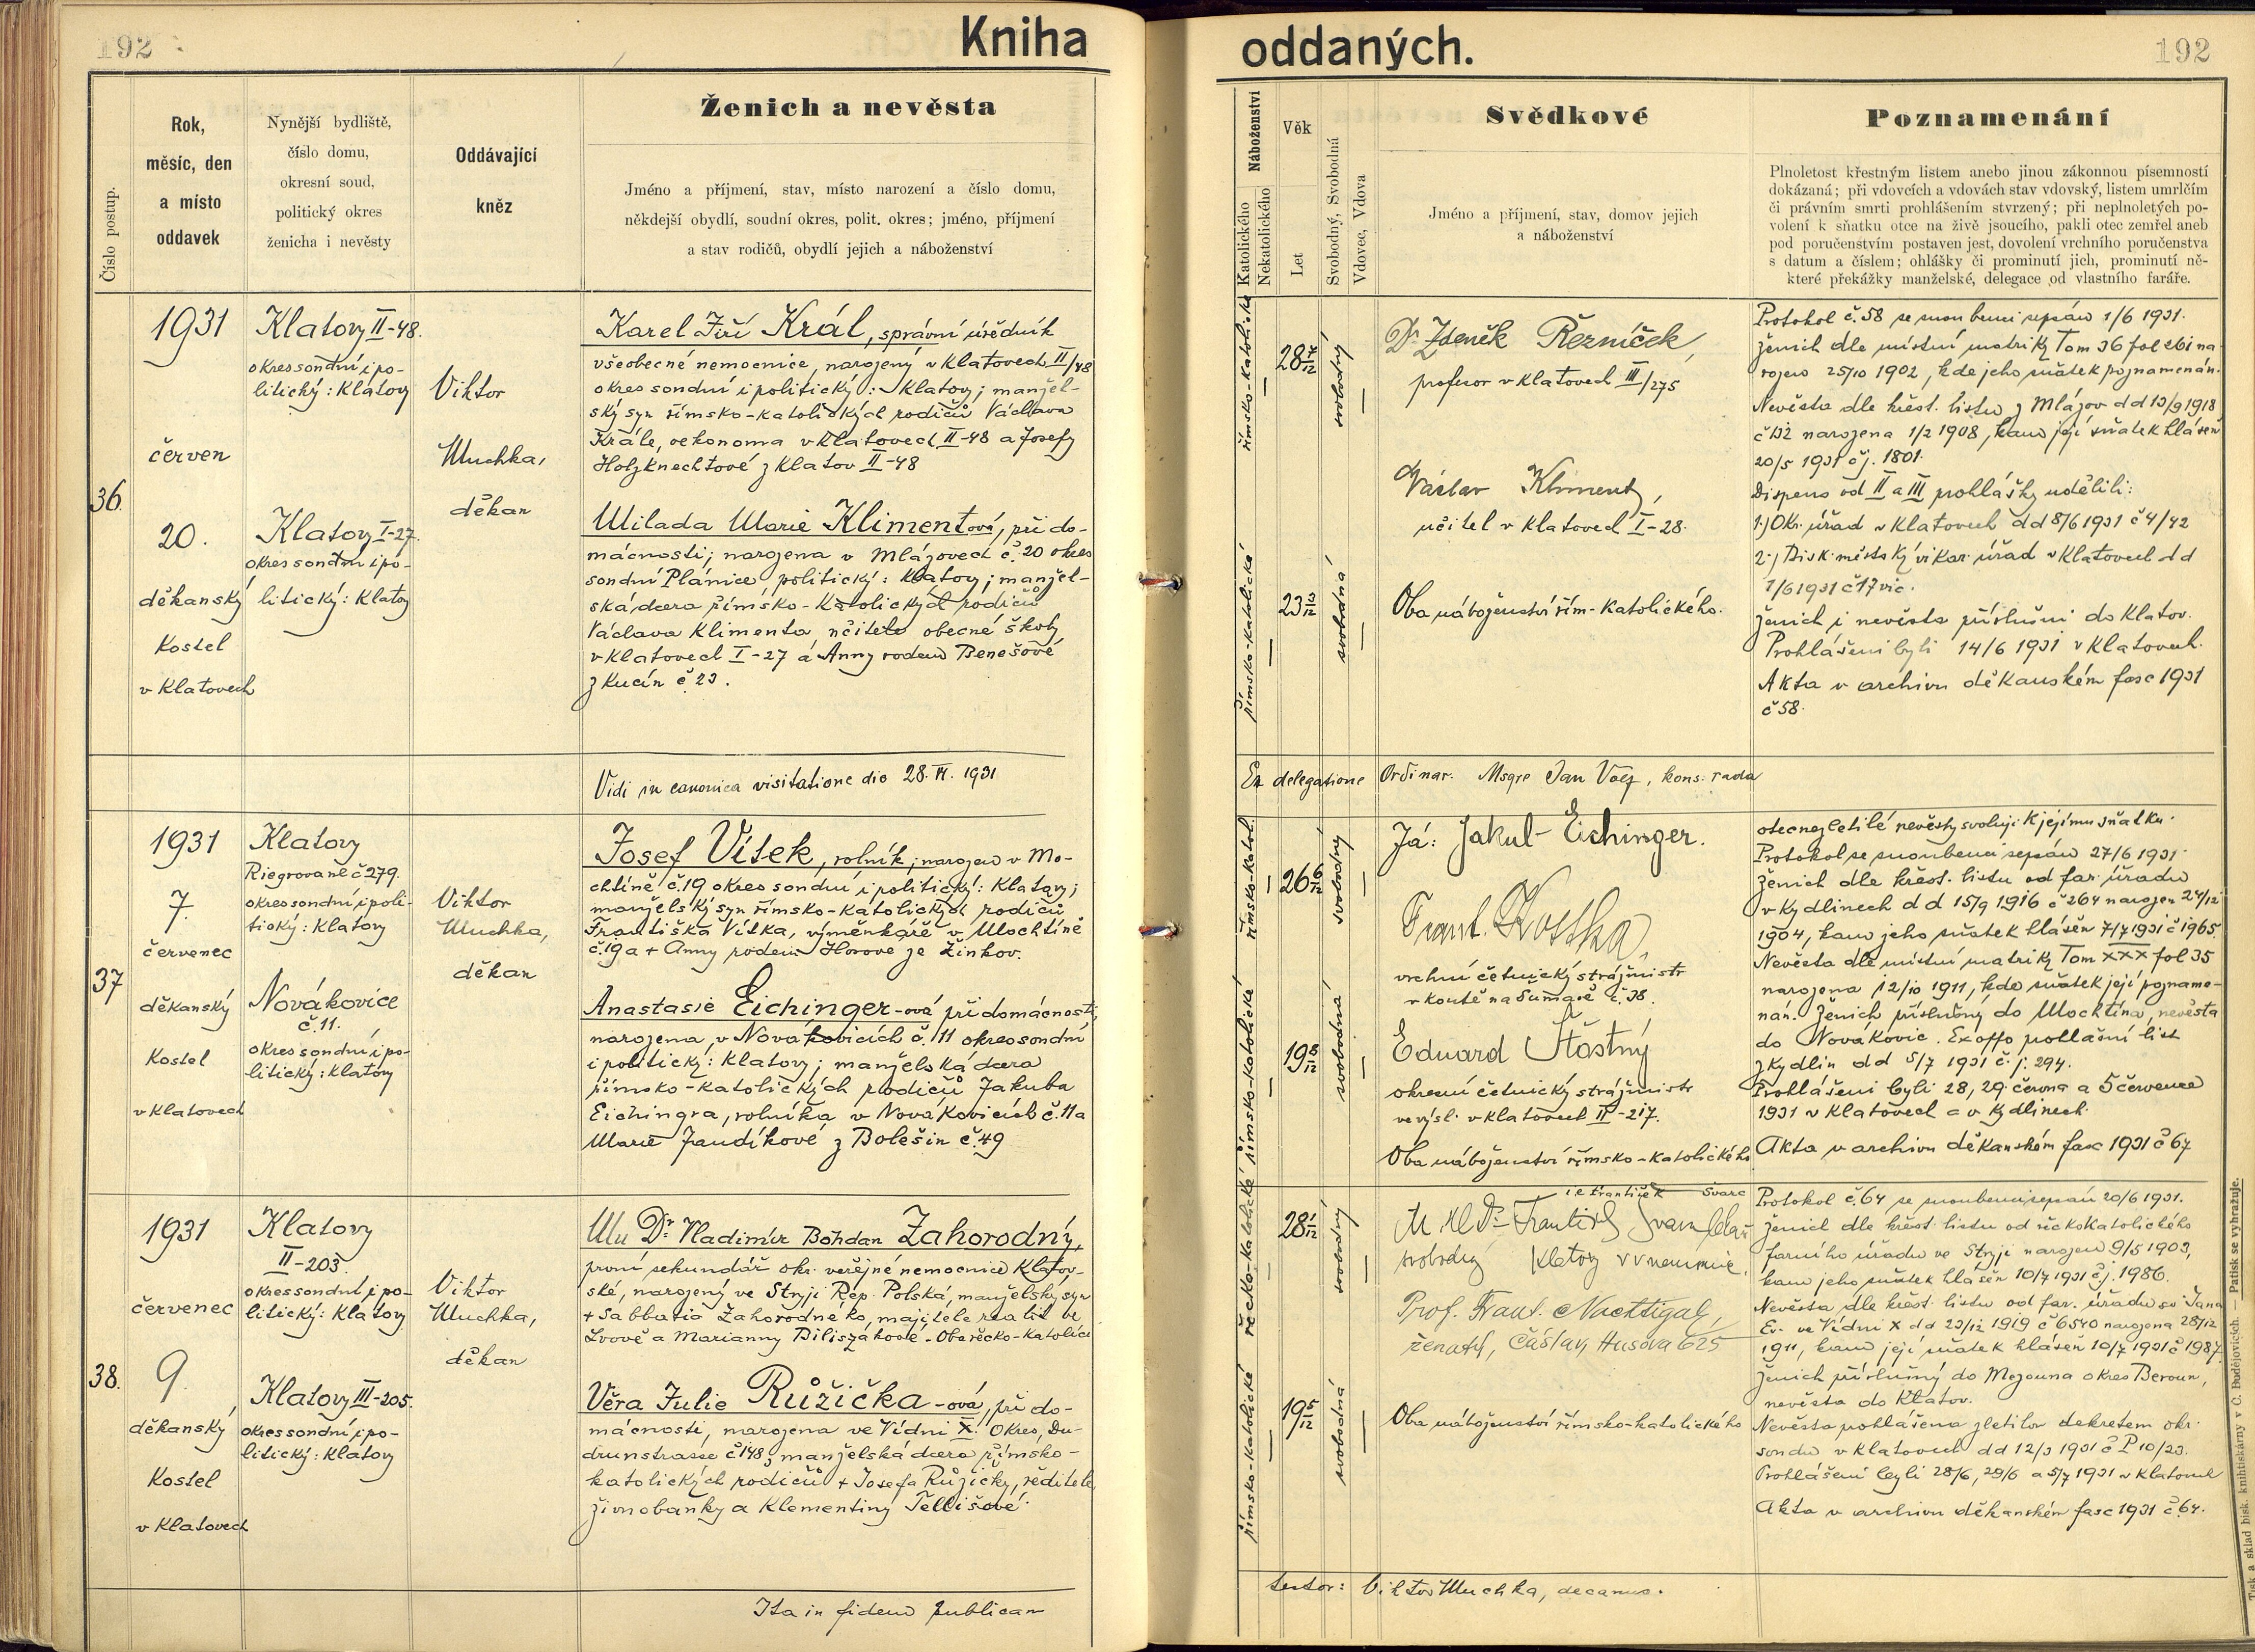 192
Kniha
oddaných.
192
Číslo postup.
Rok,
měsíc, den
a místo
oddavek
Nynější bydliště,
číslo domu,
okresní soud,
politický okres
ženicha i nevěsty
Oddávající
kněz
Ženich a nevěsta
Jméno a příjmení, stav, místo narození a číslo domu,
někdejší obydlí, soudní okres, polit. okres; jméno, příjmení
a stav rodičů, obydlí jejich a náboženství
Náboženství
Katolického
Nekatolického
Věk
Let
Svobodný, Svobodná
Vdovec, Vdova
Svědkové
Jméno a příjmení, stav, domov jejich
a náboženství
Poznamenání
Plnoletost křestným listem anebo jinou zákonnou písemností
dokázaná; při vdovcích a vdovách stav vdovský, listem umrlčím
či právním smrti prohlášením stvrzený; při neplnoletých po-
volení k sňatku otce na živě jsoucího, pakli otec zemřel aneb
pod poručenstvím postaven jest, dovolení vrchního poručenstva
s datum a číslem; ohlášky či prominutí jich, prominutí ně-
které překážky manželské, delegace od vlastního faráře.
36.
1931
červen
20.
děkanský
Kostel
v Klatovech
Klatovy II-48.
okres soudní i po-
litický: Klatovy
Klatovy I-27.
okres soudní i po-
litický: Klatovy
Viktor
Muchka,
děkan
Karel Jiří Král, správní úředník
všeobecné nemocnice, narozený v Klatovech II/48
okres soudní i politický: Klatovy; manžel-
ský syn římsko-katolických rodičů Václava
Krále, oekonoma v Klatovech II-48 a Josefy
Holzknechtové z Klatov II-48
Milada Marie Klimentová, při do-
mácnosti; narozena v Mlázovech č. 20 okres
soudní Plánice politický: Klatovy; manžel-
ská dcera římsko-katolických rodičů
Václava Klimenta, učitele obecné školy
v Klatovech I-27 a Anny rodem Benešové
z Kucín č. 23.
římsko-katolické
28 7/12
svobodný
římsko-katolické
svobodná
Dr Zdeněk Řezníček,
profesor v Klatovech III/275
Václav Kliment,
učitel v Klatovech I-28.
Oba náboženství řím-katolického.
Protokol č. 58 se snoubenci sepsán 1/6 1931.
Ženich dle místní matriky Tom 36 fol 261 na-
rozen 25/10 1902, kde jeho sňatek poznamenán.
Nevěsta dle křest. listu z Mlázov dd 13/9 1918
č 132 narozena 1/2 1908, kam její sňatek hlášen
20/5 1931 čj. 1801.
Dispens od II a III prohlášky udělili:
1.) Okr. úřad v Klatovech dd 8/6 1931 č 4/42
2.) Bisk. městský vikar. úřad v Klatovech dd
1/6 1931 č 17 vic.
Ženich i nevěsta příslušní do Klatov.
Prohlášeni byli 14/6 1931 v Klatovech.
Akta v archivu děkanském fasc 1931
č 58.
Vidi in canonica visitatione die 28. VI. 1931
Ex delegatione Ordinar. Msgre Jan Volf, kons. rada
37
1931
7.
červenec
děkanský
Kostel
v Klatovech
Klatovy
Riegrova tř č 279.
okres soudní i poli-
tický: Klatovy
Novákovice
č. 11.
okres soudní i po-
litický: Klatovy
Viktor
Muchka,
děkan
Josef Vítek, rolník; narozen v Mo-
chtíně č. 19 okres soudní i politický: Klatovy;
manželský syn římsko-katolických rodičů
Františka Vítka, výměnkáře v Mochtíně
č. 19 a + Anny rodem Horové ze Žinkov.
Anastasie Eichinger-ová při domácnosti,
narozena v Novákovicích č. 11 okres soudní
i politický: Klatovy; manželská dcera
římsko-katolických rodičů Jakuba
Eichingra, rolníka v Novákovicích č. 11 a
Marie Jandíkové z Bolešin č. 49
římsko-katol.
26 6/12
svobodný
římsko-katolické
19 8/12
svobodná
Já: Jakub Eichinger.
Frant. Kostka,
vrchní četnický strážmistr
v Koutě na Šumavě č. 38.
Eduard Šťastný
okresní četnický strážmistr
ve výsl. v Klatovech II-217.
Oba náboženství římsko-katolického
otec nezletilé nevěsty svoluji k jejímu sňatku.
Protokol se snoubenci sepsán 27/6 1931.
Ženich dle křest. listu od far. úřadu
v Kydlinech dd 15/9 1916 č 264 narozen 24/12
1904, kam jeho sňatek hlášen 7/7 1931 č 1965.
Nevěsta dle místní matriky Tom XXX fol 35
narozena 12/10 1911, kde sňatek její pozname-
nán. Ženich příslušný do Mochtína, nevěsta
do Novákovic. Ex offo pohlašní list
z Kydlin dd 5/7 1931 č. j. 294.
Prohlášeni byli 28, 29. června a 5 července
1931 v Klatovech a v Kydlinech.
Akta v archivu děkanském fasc 1931 č 67
38.
1931
červenec
9.
děkanský
Kostel
v Klatovech
Klatovy
II-203.
okres soudní i po-
litický: Klatovy
Klatovy III-205.
okres soudní i po-
litický: Klatovy
Viktor
Muchka,
děkan
MU Dr. Vladimír Bohdan Zahorodný,
první sekundář okr. veřejné nemocnice Klatov-
ské, narozený ve Stryji Rep. Polská, manželský syn
+ Sabbatia Zahorodného, majitele realit ve
Lvově a Marianny Biliszákové - Oba řecko-katolíci
Věra Julie Růžička-ová, při do-
mácnosti, narozena ve Vídni X. Okres, Du-
drunstrasse č 148; manželská dcera římsko-
katolických rodičů + Josefa Růžičky, ředitele
živnobanky a Klementiny Tellišové.
řecko-katolické
28 1/12
svobodný
římsko-katolické
svobodná
i.e. František Švarc
MUDr František
svobodný Klatovy v nemocnici.
Prof. Frant. Nachtigal,
ženatý, Čáslav, Husova 625
Oba náboženství římsko-katolického
Protokol č. 64 se snoubenci sepsán 20/6 1931.
Ženich dle křest. listu od řeckokatolického
farního úřadu ve Stryji narozen 9/5 1903,
kam jeho sňatek hlášen 10/7 1931 čj. 1986.
Nevěsta dle křest. listu od far. úřadu sv. Jana
Ev. ve Vídni X dd 23/12 1919 č 6540 narozena 28/12
1911, kam její sňatek hlášen 10/7 1931 č 1987.
Ženich příslušný do Mezouna okres Beroun,
nevěsta do Klatov.
Nevěsta pohlášena zletilou dekretem okr.
soudu v Klatovech dd 12/3 1931 č P 10/23.
Prohlášeni byli 28/6, 29/6 a 5/7 1931 v Klatovech
Akta v archivu děkanském fasc 1931 č 64.
Ita in fidem publicam
testor: Viktor Muchka, decanus.
Tisk a sklad bisk. knihtiskárny v Č. Budějovicích. — Patisk se vyhražuje.